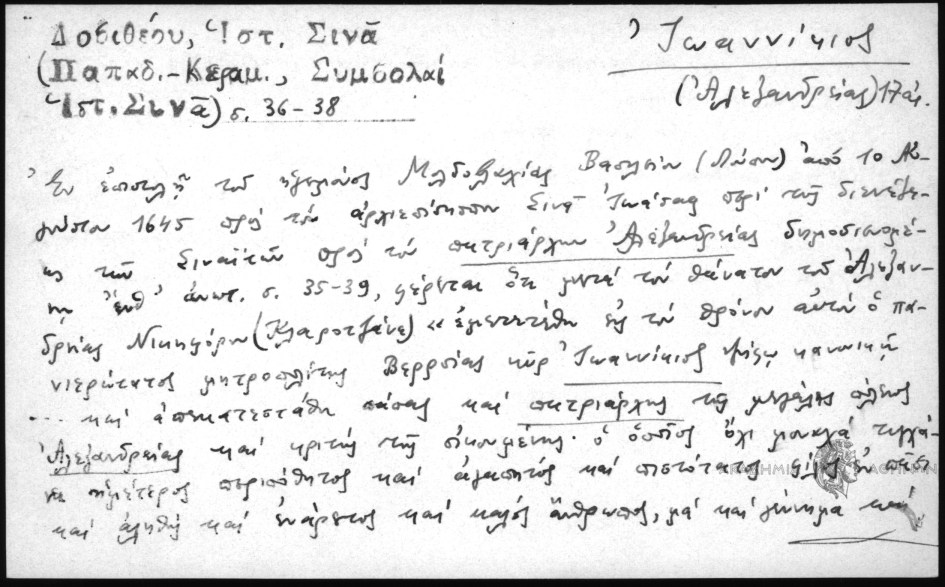 Δοσιθέου, Ἱστ. Σινᾶ
(Παπαδ.-Κεραμ., Συμβολαί
Ἱστ. Σινᾶ) σ. 36-38
Ἰωαννίκιος
(Ἀλεξανδρείας) 17 αἰ.
Ἐν ἐπιστολῇ τοῦ ἡγεμόνος Μολδοβλαχίας Βασιλείου (Λύπου) ἀπὸ 10 Αὐ-
γούστου 1645 πρὸς τὸν ἀρχιεπίσκοπον Σινᾶ Ἰωάσαφ περὶ τῆς διενέξε-
ως τῶν Σιναϊτῶν πρὸς τὸν πατριάρχην Ἀλεξανδρείας δημοσιευομέ-
νῃ ἔνθ' ἀνωτ. σ. 35-39, φέρεται ὅτι μετὰ τὸν θάνατον τοῦ Ἀλεξαν-
δρείας Νικηφόρου (Κλαροτζάνε) « ἐμετετέθη εἰς τὸν θρόνον αὐτοῦ ὁ πα-
νιερώτατος μητροπολίτης Βερροίας κὺρ Ἰωαννίκιος ψήφῳ κανονικῇ
... καὶ ἀπεκατεστάθη πάπας καὶ πατριάρχης τῆς μεγάλης πόλεως
Ἀλεξανδρείας καὶ κριτὴς τῆς οἰκουμένης· ὁ ὁποῖος ὄχι μοναχὰ τυγχά-
νει ἡμέτερος περιπόθητος καὶ ἀγαπητὸς καὶ πιστότατος φίλος ἐν πᾶσι
καὶ ἀληθὴς καὶ ἐνάρετος καὶ καλὸς ἄνθρωπος, μὰ καὶ γέννημα καὶ